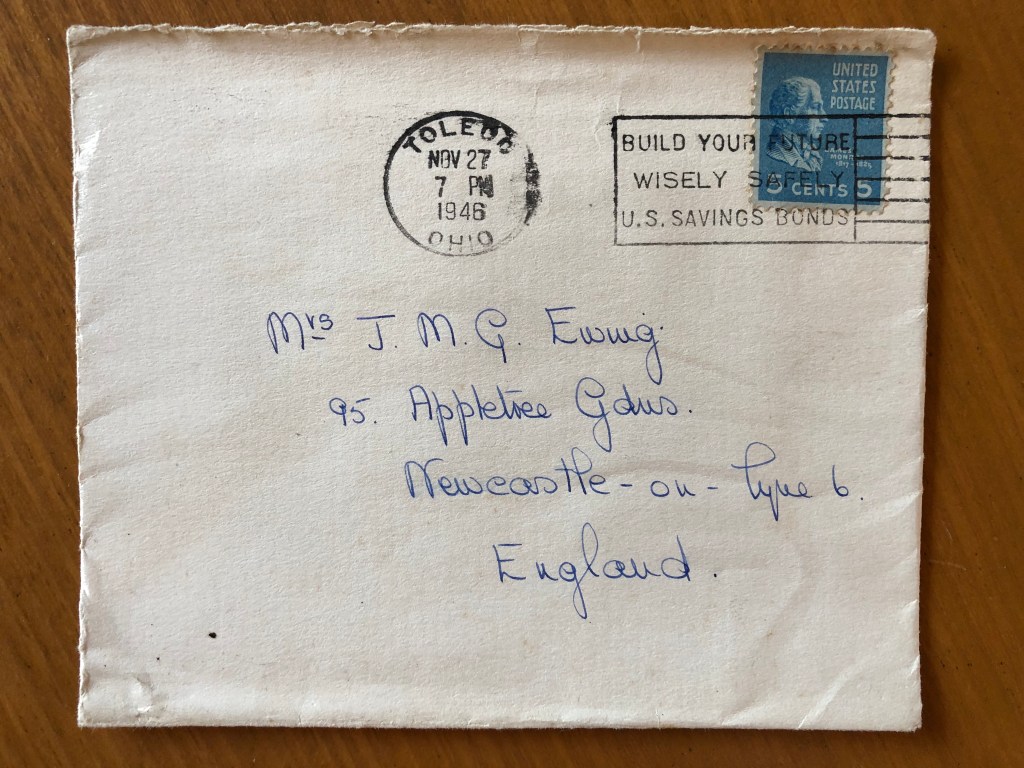 UNITED
STATES
POSTAGE
5 CENTS 5
TOLEDO
NOV 27
7 PM
1946
OHIO
BUILD YOUR FUTURE
WISELY SAFELY
U.S. SAVINGS BONDS
Mrs J. M. G. Ewing
95. Appletree Gdns.
Newcastle-on-Tyne 6.
England.